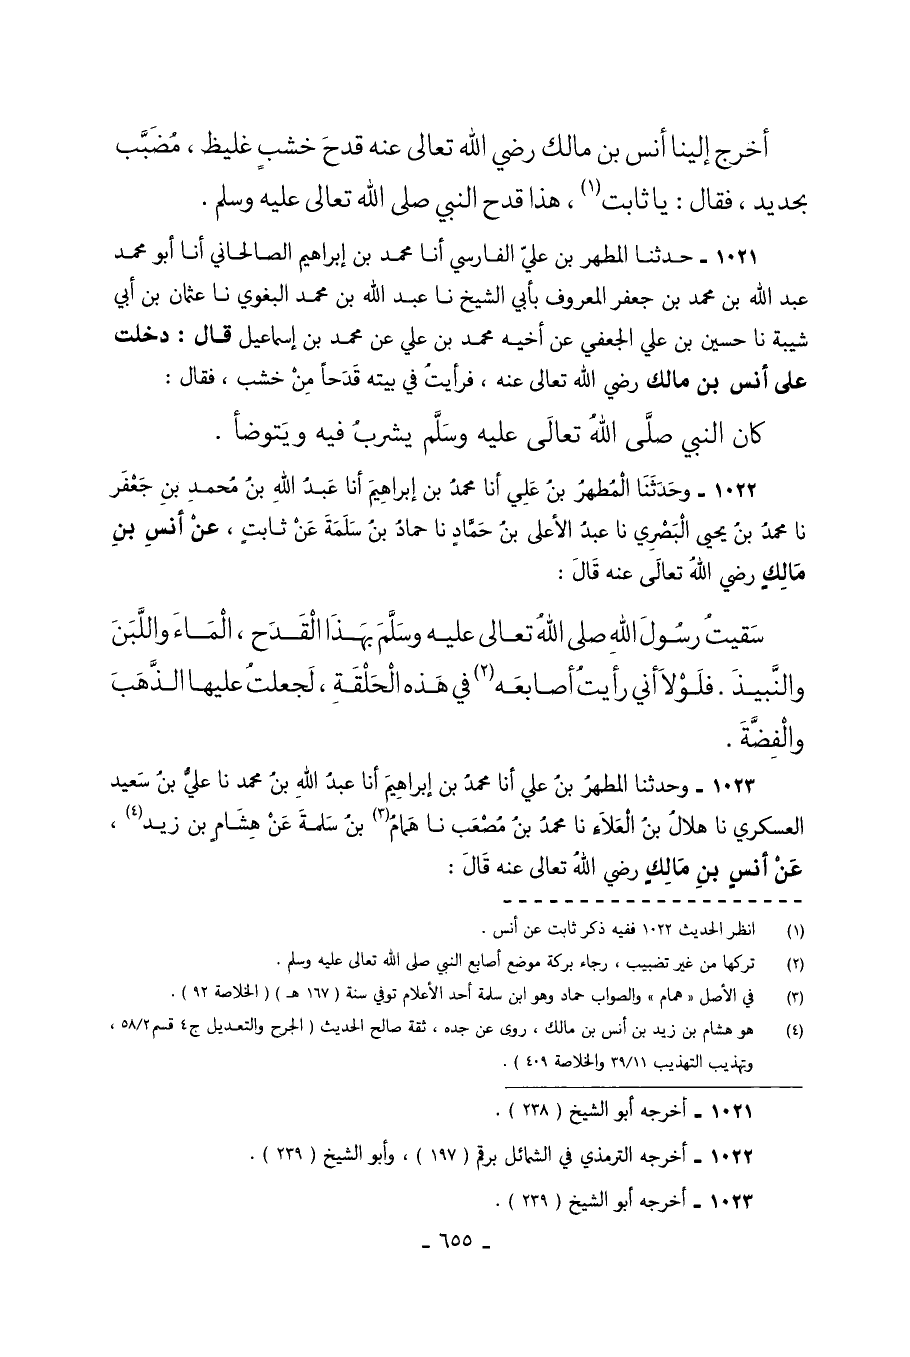 أخرج إلينا أنس بن مالك رضي الله تعالى عنه قدحَ خشبٍ غليظ ، مُضَبَّب
بحديد ، فقال : يا ثابت(١) ، هذا قدح النبي صلى الله تعالى عليه وسلم .
١٠٢١ ـ حدثنا المطهر بن عليّ الفارسي أنا محمد بن إبراهيم الصالحاني أنا أبو محمد
عبد الله بن محمد بن جعفر المعروف بأبي الشيخ نا عبد الله بن محمد البغوي نا عثمان بن أبي
شيبة نا حسين بن علي الجعفي عن أخيه محمد بن علي عن محمد بن إسماعيل قال : دخلت
على أنس بن مالك رضي الله تعالى عنه ، فرأيتُ في بيته قَدَحاً مِنْ خشب ، فقال :
كان النبي صلَّى اللهُ تعالَى عليه وسَلَّم يشربُ فيه ويَتوضأ .
١٠٢٢ ـ وحَدَثَنَا الْمُطهرُ بنُ عَلِي أنا محمدُ بن إبراهِيمَ أنا عَبدُ اللهِ بنُ مُحمدِ بنِ جَعْفَر
نا محمدُ بنُ يحيى الْبَصْرِي نا عبدُ الأعلى بنُ حَمَّادٍ نا حمادُ بنُ سَلَمَةَ عَنْ ثابتٍ ، عنْ أنسِ بنِ
مَالِكٍ رضي اللهُ تعالَى عنه قَالَ :
سَقيتُ رسُولَ اللهِ صلى اللهُ تعالى عليه وسَلَّمَ بهَذَا الْقَدَحِ ، الْمَاءَ واللَّبَنَ
والنَّبيذَ . فلَوْلاَ أني رأيتُ أصابعَه(٢) في هَذه الْحَلْقَةِ ، لَجعلتُ عليها الذَّهَبَ
والْفِضَّةَ .
١٠٢٣ ـ وحدثنا المطهرُ بنُ علي أنا محمدُ بن إبراهيمَ أنا عبدُ اللهِ بنُ محمد نا عليُّ بنُ سَعيد
العسكري نا هلالُ بنُ الْعَلاَء نا محمدُ بنُ مُصْعَب نا هَمامُ(٣) بنُ سَلمةَ عَنْ هِشَامٍ بن زيد(٤) ،
عَنْ أنسٍ بنِ مَالِكٍ رضي اللهُ تعالى عنه قَالَ :
(١) انظر الحديث ١٠٢٢ ففيه ذكر ثابت عن أنس .
(٢) تركها من غير تضبيب ، رجاء بركة موضع أصابع النبي صلى الله تعالى عليه وسلم .
(٣) في الأصل « همام » والصواب حماد وهو ابن سلمة أحد الأعلام توفي سنة ( ١٦٧ هـ ) ( الخلاصة ٩٢ ) .
(٤) هو هشام بن زيد بن أنس بن مالك ، روى عن جده ، ثقة صالح الحديث ( الجرح والتعديل ج٤ قسم٥٨/٢ ،
وتهذيب التهذيب ٣٩/١١ والخلاصة ٤٠٩ ) .
١٠٢١ ـ أخرجه أبو الشيخ ( ٢٣٨ ) .
١٠٢٢ ـ أخرجه الترمذي في الشمائل برقم ( ١٩٧ ) ، وأبو الشيخ ( ٢٣٩ ) .
١٠٢٣ ـ أخرجه أبو الشيخ ( ٢٣٩ ) .
ـ ٦٥٥ ـ